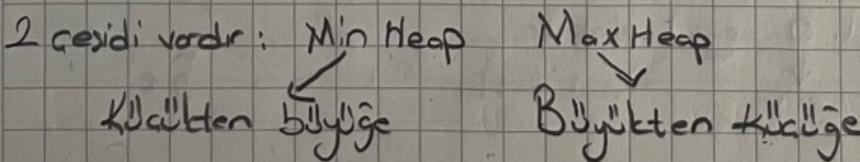 2 çeşidi vardır: Min Heap Max Heap
Küçükten büyüğe Büyükten küçüğe